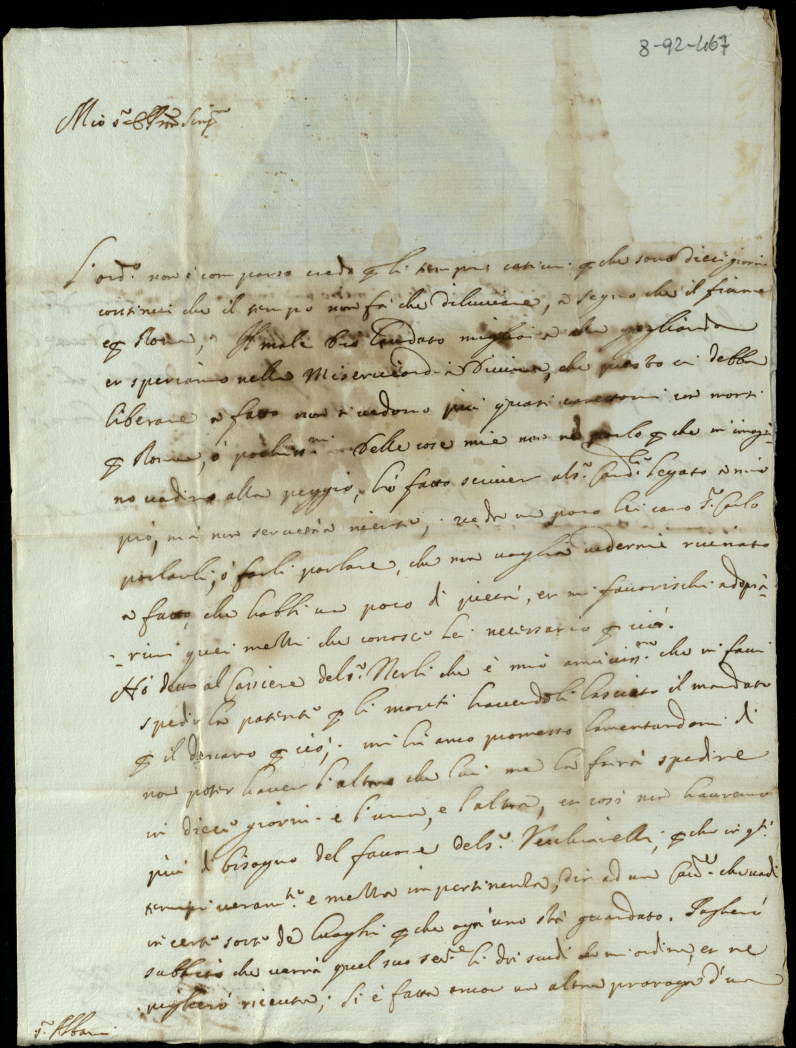 8-92-467
Mio s.r e P.ron sing.re
L'ord.o non è comparso credo p li tempi cativi p che sono dieci giorni
continui che il tempo non fà che diluviare, à segno che il fiume
e p Roma, Il male Dio lodato migliora alla gagliarda
et speriamo nella Misericordia Divina, che presto ci debba
liberare à fatto non si vedono più quasi carrettoni con morti
p Roma, ò pochiss.mi Delle cose mie non ne parlo p che m'imagi-
no vadino alla peggio, hò fatto scriver al s.r Card.l Legato à mio
prò, mà non servirà niente, veda un poco lei caro s.r Carlo
parlarli, ò farli parlare, che non voglia vedermi ruinato
à fatto, che habbi un poco di pietà, et mi favorischi adoprà-
-rvi quei mezzi che conosce lei necessario p ciò.
Hò detto al Cassiere del s.r Nerli che è mio amiciss.mo che mi facci
spedir la patente p li moriti havendoli lasciato il mandato
p il denaro p ciò, mi hà anco promesso lamentandomi di
non poter haver l'altra che lui me la farà spedire
in dieci giorni e l'una, e l'altra, et così non havremo
più di bisogno del favore del s.r Vecchiarelli, p che in q.ti
tempi veram.te e mezza impertinenza, dir ad un Cav.re che vadi
in certe sorte de luoghi p che ogn'uno stà guardato. Pagherò
subbito che verrà quel suo ser.re li doi scudi che mi ordina, et ne
pigliarò riceuta; Si è fatto ancor un altra proroga d'un
s.r Albani